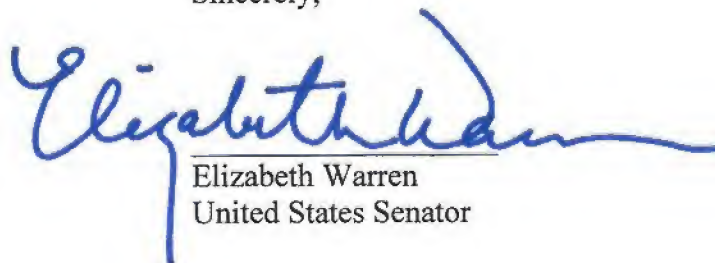 Sincerely,
Elizabeth Warren
Elizabeth Warren
United States Senator